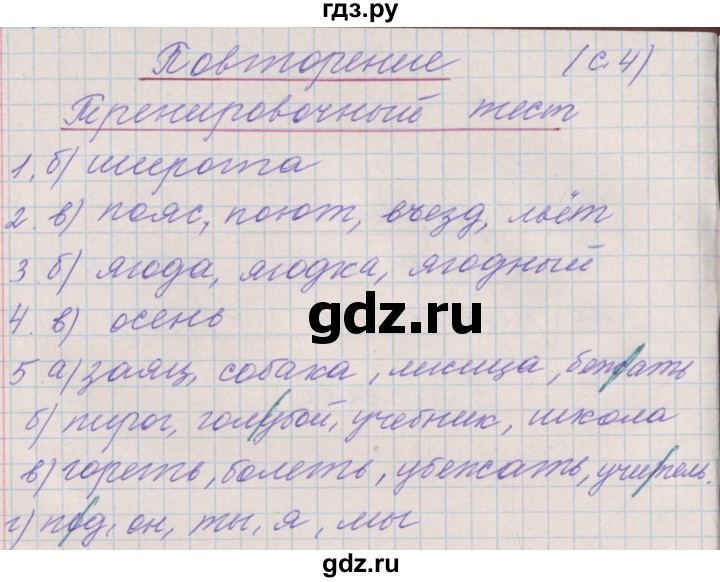 гдз.ру
Повторение (с.4)
Тренировочный тест
1. б) широта
2. в) пояс, поют, въезд, льёт
3 б) ягода, ягодка, ягодный
4. в) осень
gdz.ru
5 а) заяц, собака, лисица, бежать
б) пирог, голубой, учебник, школа
в) гореть, болеть, убежать, учитель.
г) под, он, ты, я, мы
gdz.ru